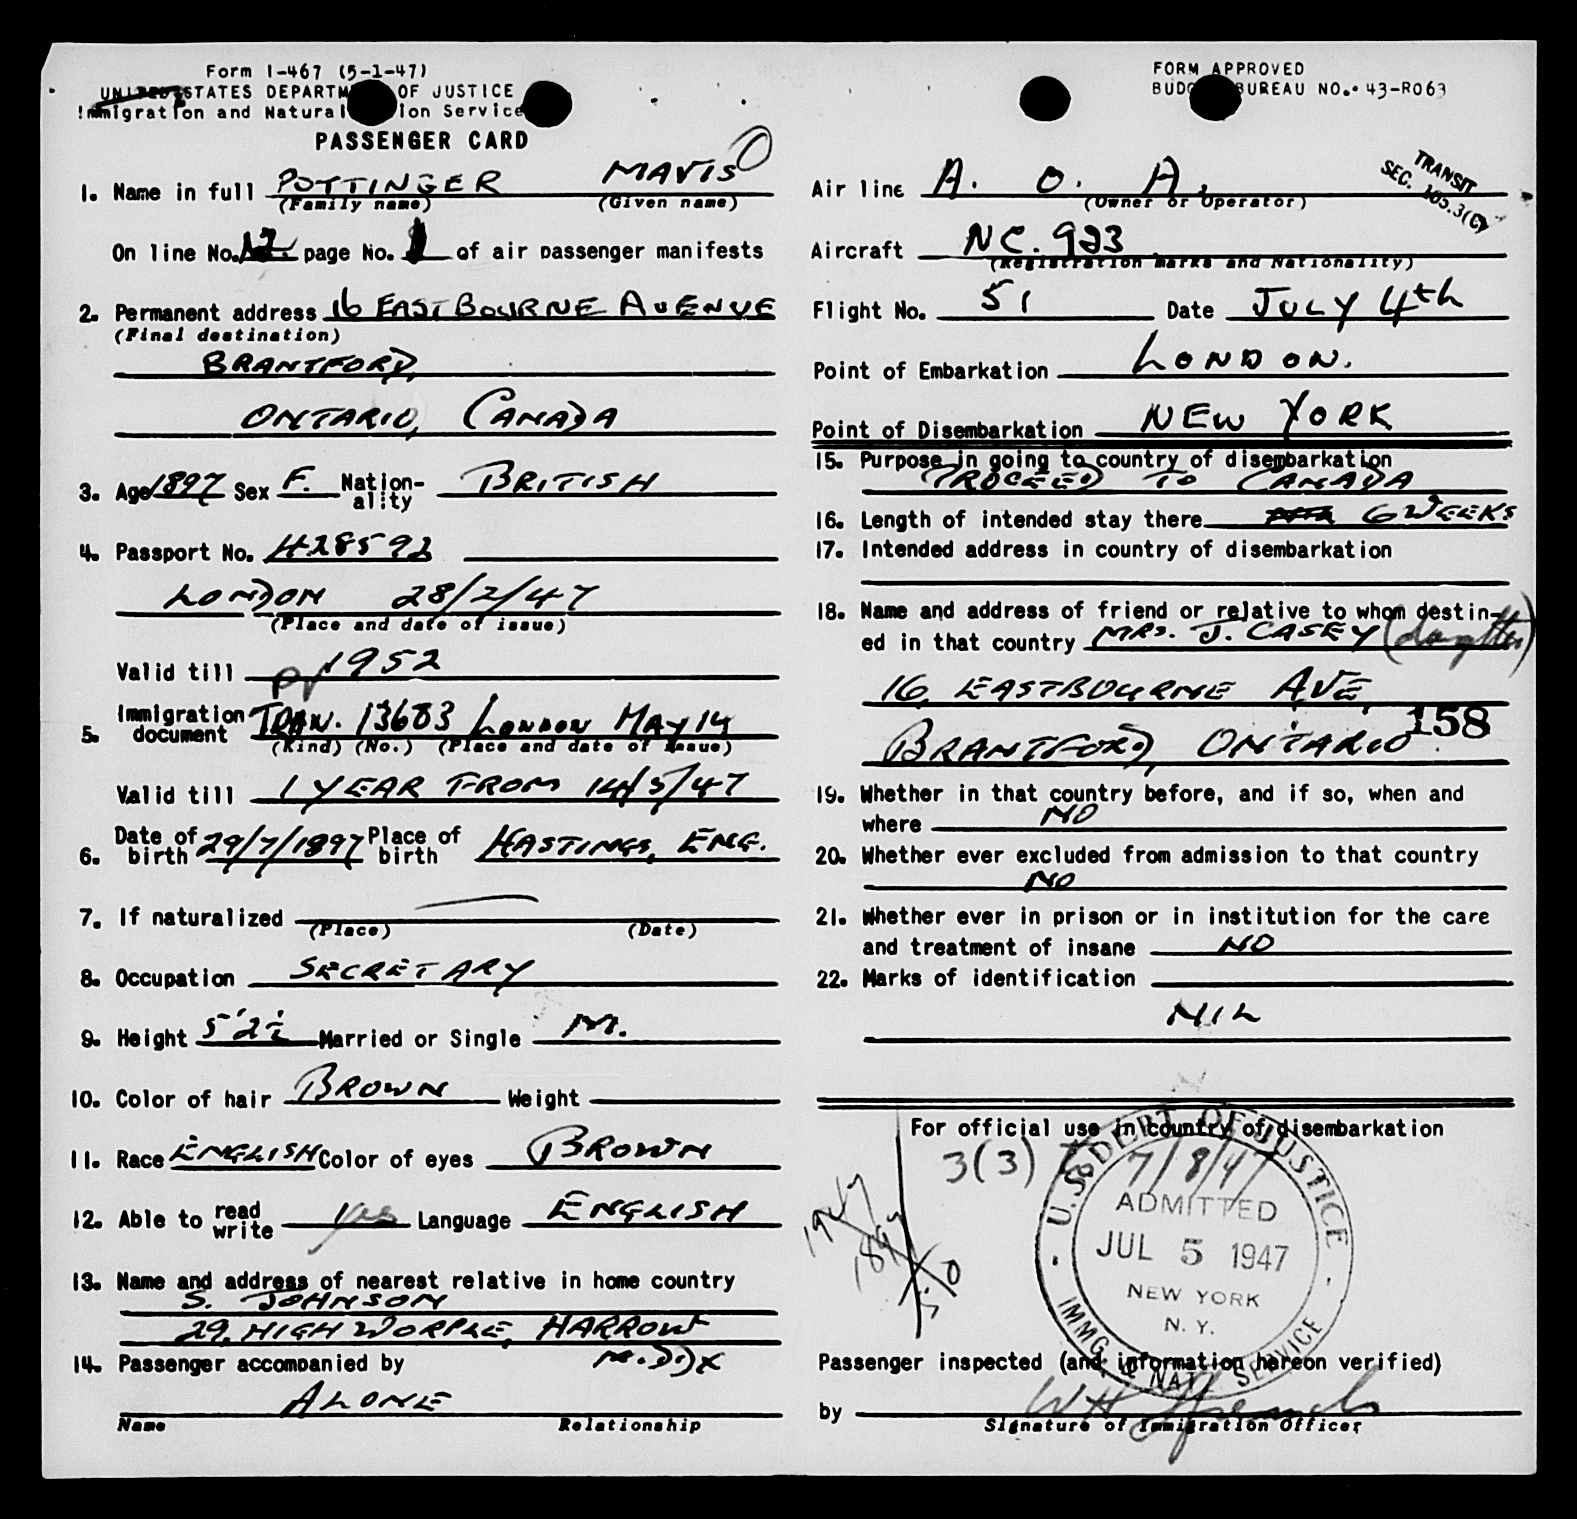 Form I-467 (5-1-47)
UNITED STATES DEPARTM OF JUSTICE
Immigration and Natural ion Service
PASSENGER CARD
1. Name in full POTTINGER MAVIS
(Family name) (Given name)
On line No. 12 page No. 1 of air passenger manifests
2. Permanent address 16 EASTBOURNE AVENUE
(Final destination)
BRANTFORD,
ONTARIO, CANADA
3. Age 1897 Sex F. Nation-ality BRITISH
4. Passport No. 428592
LONDON 28/2/47
(Place and date of issue)
Valid till 1952
5. Immigration document TRAN. 13683 LONDON MAY 14
(Kind) (No.) (Place and date of issue)
Valid till 1 YEAR FROM 14/5/47
6. Date of birth 29/7/1897 Place of birth HASTINGS, ENG.
7. If naturalized
(Place) (Date)
8. Occupation SECRETARY
9. Height 5'2½ Married or Single M.
10. Color of hair BROWN Weight
11. Race ENGLISH Color of eyes BROWN
12. Able to read write yes Language ENGLISH
13. Name and address of nearest relative in home country
S. JOHNSON
29, HIGH WORPLE, HARROW
14. Passenger accompanied by M.D.)X
ALONE
Name Relationship
FORM APPROVED
BUDG BUREAU NO. 43-R063
TRANSIT
SEC. 105.3(C)
Air line A. O. A.
(Owner or Operator)
Aircraft NC. 923
(Registration marks and Nationality)
Flight No. 51 Date JULY 4th
Point of Embarkation LONDON.
Point of Disembarkation NEW YORK
15. Purpose in going to country of disembarkation
PROCEED TO CANADA
16. Length of intended stay there 6 WEEKS
17. Intended address in country of disembarkation
18. Name and address of friend or relative to whom destin-
ed in that country MRS. J. CASEY (daughter)
16, EASTBOURNE AVE,
BRANTFORD, ONTARIO 158
19. Whether in that country before, and if so, when and
where NO
20. Whether ever excluded from admission to that country
NO
21. Whether ever in prison or in institution for the care
and treatment of insane NO
22. Marks of identification
NIL
For official use in country of disembarkation
3(3) 7/8/47
1947
1897
50
U.S. DEPT. OF JUSTICE
ADMITTED
JUL 5 1947
NEW YORK
N. Y.
IMMG. & NATZ. SERVICE
Passenger inspected (and information hereon verified)
by
Signature of Immigration Officer